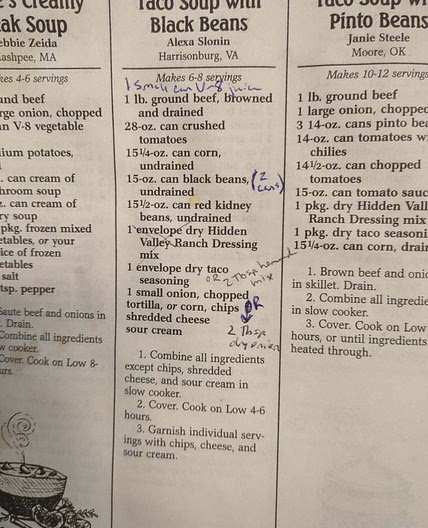 's Creamy
ak Soup
ebbie Zeida
ashpee, MA
kes 4-6 servings
und beef
arge onion, chopped
an V-8 vegetable
ium potatoes,
. can cream of
hroom soup
z. can cream of
ry soup
pkg. frozen mixed
etables, or your
ice of frozen
etables
salt
tsp. pepper
Saute beef and onions in
. Drain.
Combine all ingredients
w cooker.
Cover. Cook on Low 8-
urs.
Taco Soup with
Black Beans
Alexa Slonin
Harrisonburg, VA
Makes 6-8 servings
1 small can V-8 juice
1 lb. ground beef, browned
and drained
28-oz. can crushed
tomatoes
15¼-oz. can corn,
undrained
15-oz. can black beans, (2
undrained cans)
15½-oz. can red kidney
beans, undrained
1 envelope dry Hidden
Valley Ranch Dressing
mix
1 envelope dry taco
seasoning OR 2 Tbsp mix
1 small onion, chopped
tortilla, or corn, chips OR
shredded cheese
sour cream 2 Tbsp
dry onion
1. Combine all ingredients
except chips, shredded
cheese, and sour cream in
slow cooker.
2. Cover. Cook on Low 4-6
hours.
3. Garnish individual serv-
ings with chips, cheese, and
sour cream.
Taco Soup wi
Pinto Beans
Janie Steele
Moore, OK
Makes 10-12 servings
1 lb. ground beef
1 large onion, chopped
3 14-oz. cans pinto bea
14-oz. can tomatoes w
chilies
14½-oz. can chopped
tomatoes
15-oz. can tomato sauc
1 pkg. dry Hidden Vall
Ranch Dressing mix
1 pkg. dry taco seasoni
15¼-oz. can corn, drai
1. Brown beef and onio
in skillet. Drain.
2. Combine all ingredie
in slow cooker.
3. Cover. Cook on Low
hours, or until ingredients
heated through.